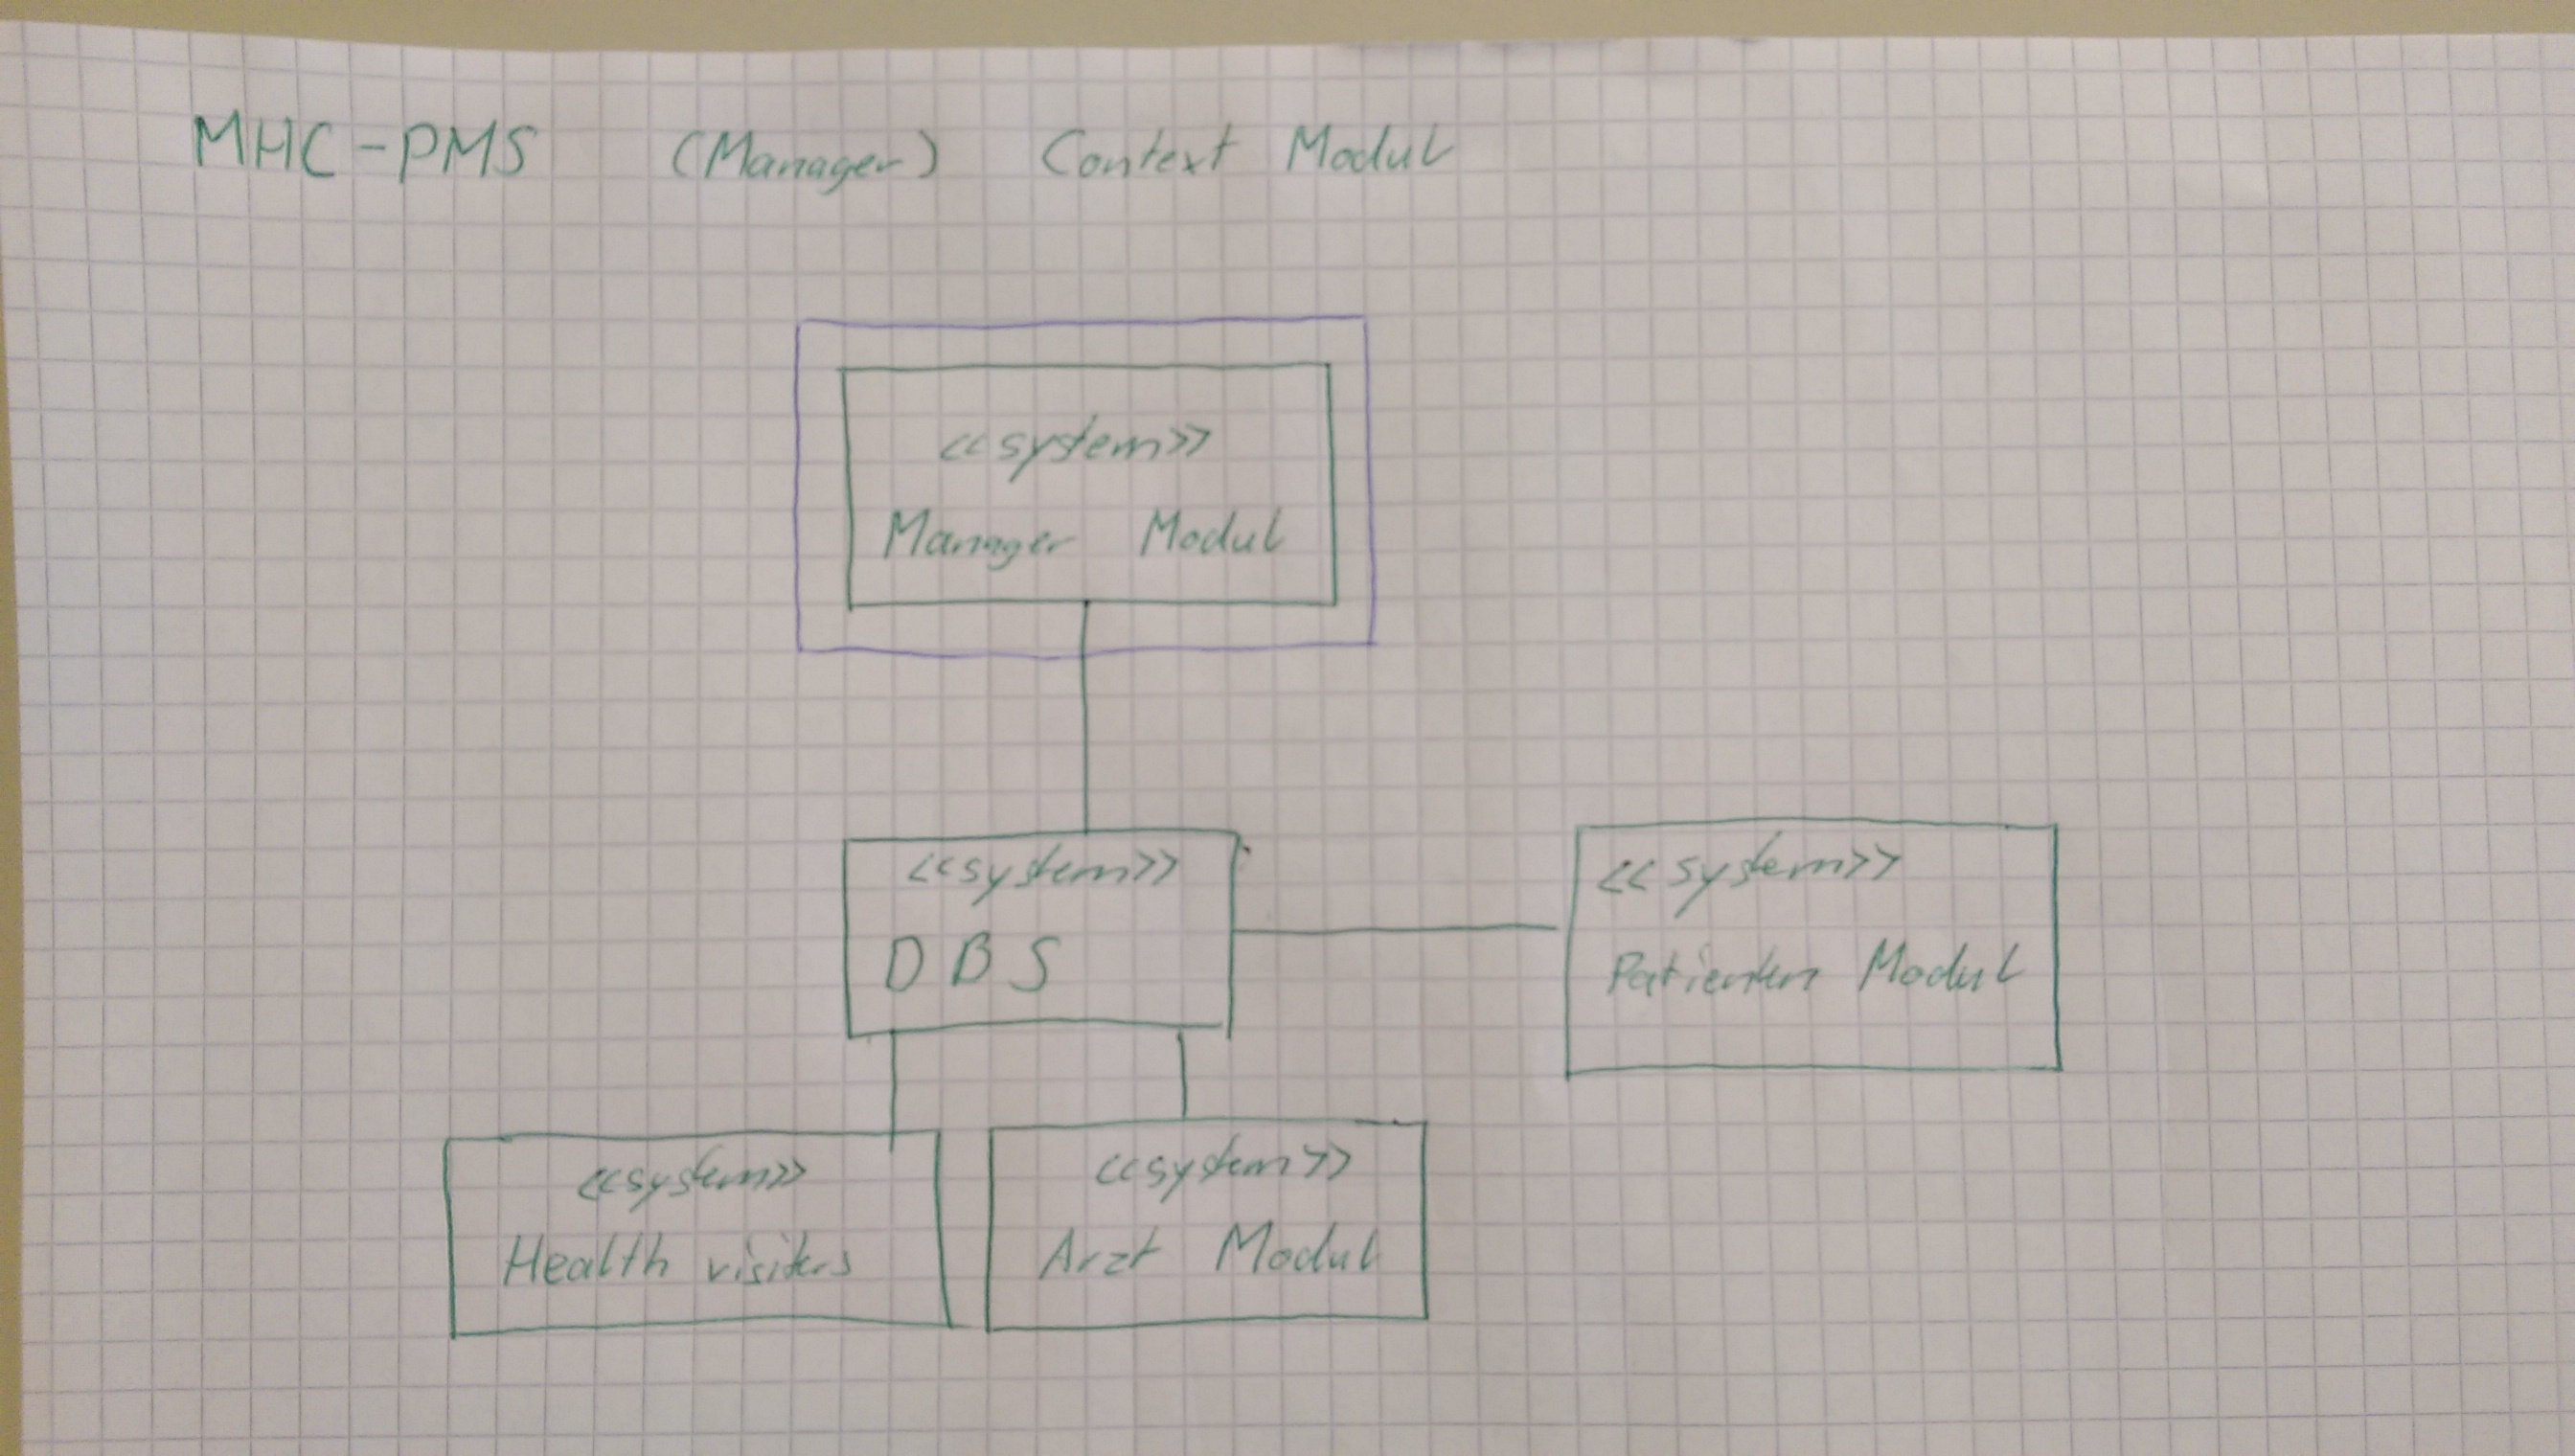 MHC-PMS (Manager) Context Modul
<<system>>
Manager Modul
<<system>>
DBS
<<system>>
Patienten Modul
<<system>>
Health visiters
<<system>>
Arzt Modul